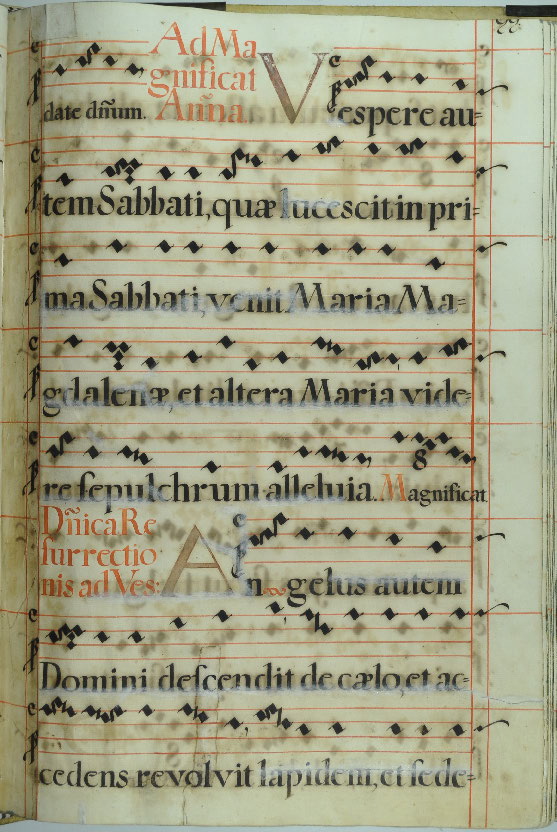 Ad Ma
gnificat
date dn̄um. Añna. Vespere au=
tem Sabbati, quæ lucescit in pri=
ma Sabbati, venit Maria Ma=
gdalenæ, et altera Maria vide=
re sepulchrum alleluia. Magnificat
Dn̄ica Re
surrectio
nis ad Ves: Angelus autem
Domini descendit de cælo, et ac=
cedens revolvit lapidem, et sede=